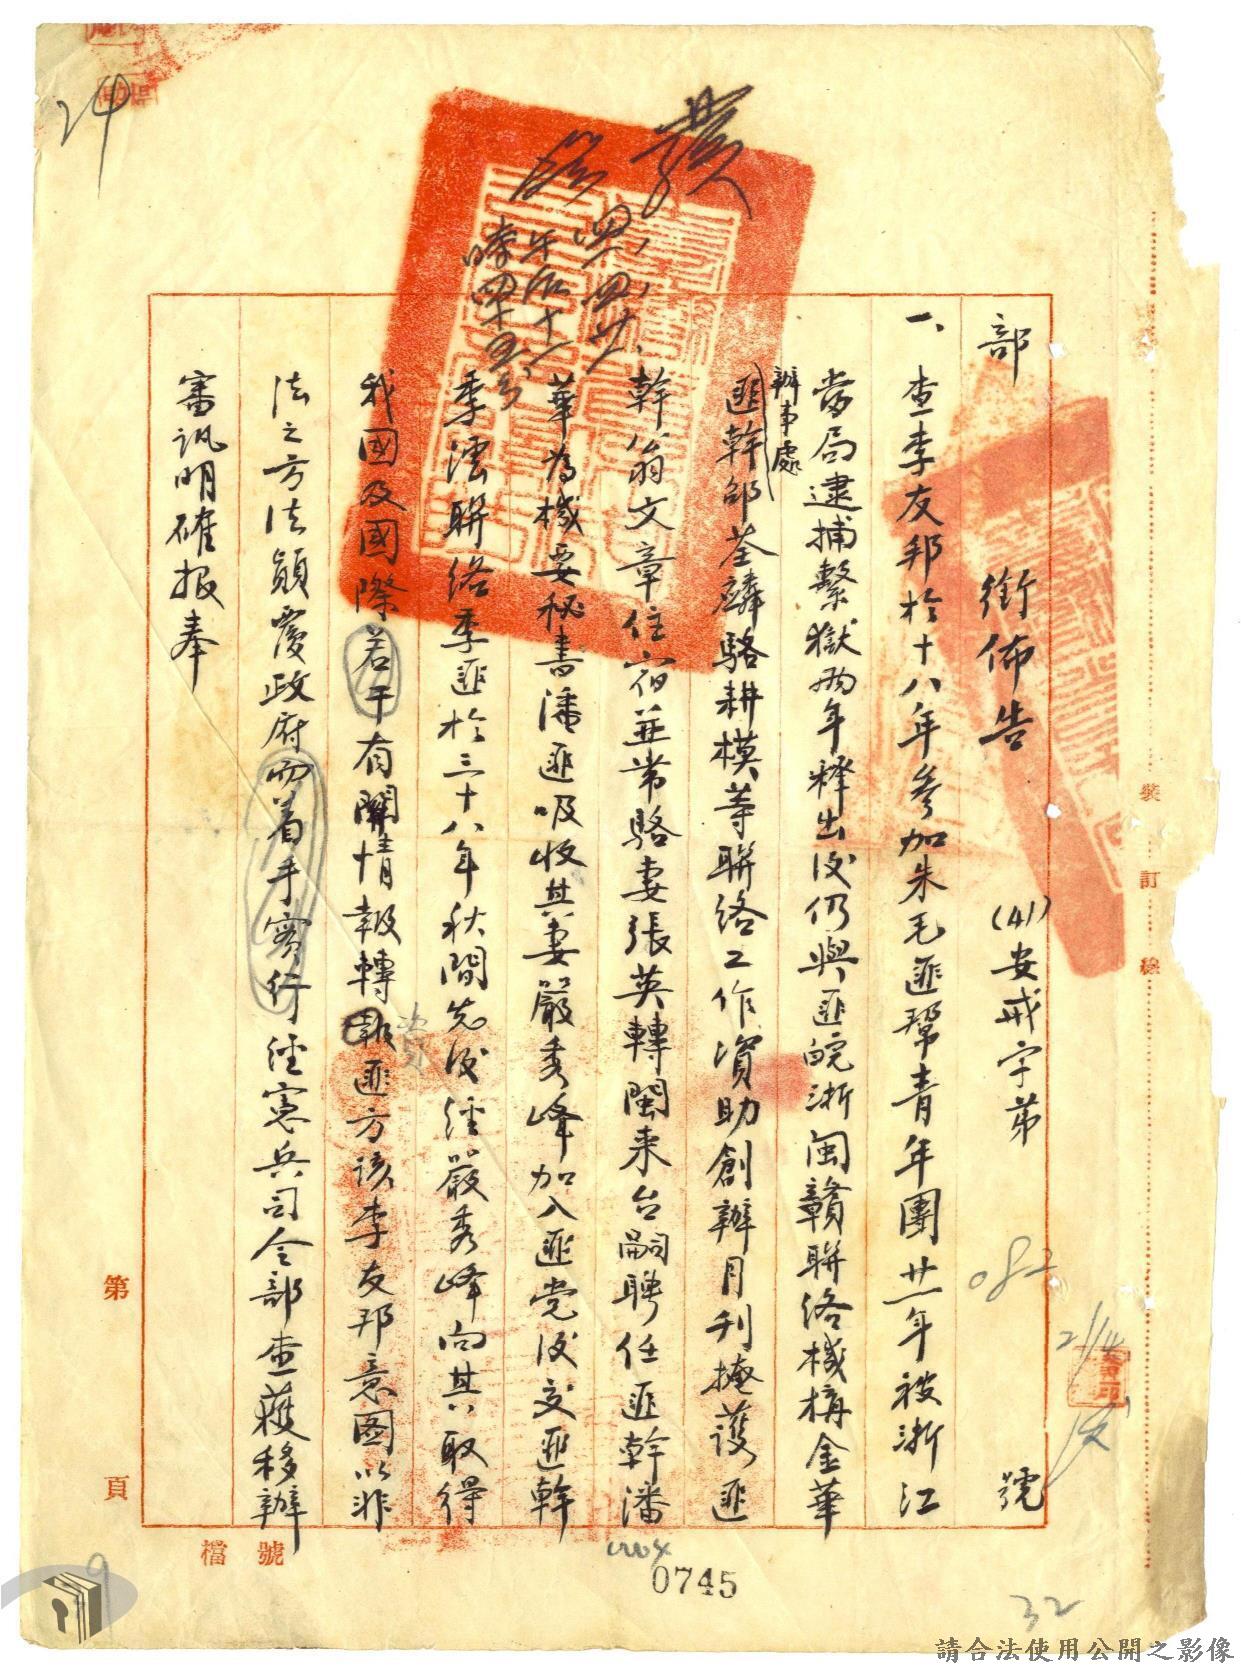 部 銜佈告 (41)安戒字第 082 號
一、查李友邦於十八年參加朱毛匪幫青年團廿一年被浙江
當局逮捕繫獄兩年釋出後仍與匪皖浙閩贛聯絡機構金華
辦事處
匪幹邵荃麟駱耕模等聯絡工作資助創辦月刊掩護匪
幹翁文章住宿並帶駱妻張英轉閩來台嗣聘任匪幹潘
華為機要秘書潘匪吸收其妻嚴秀峰加入匪党後交匪幹
季澐聯絡季匪於三十八年秋間先後經嚴秀峰向其取得
我國及國際若干有關情報轉報匪方該李友邦意圖以非
資
法之方法顛覆政府而着手實行經憲兵司令部查獲移辦
審訊明確报奉
發
四、廿一、
午后十一
時四十五分
24
裝 訂 線
第 頁
檔 號
0745
32
9
請合法使用公開之影像